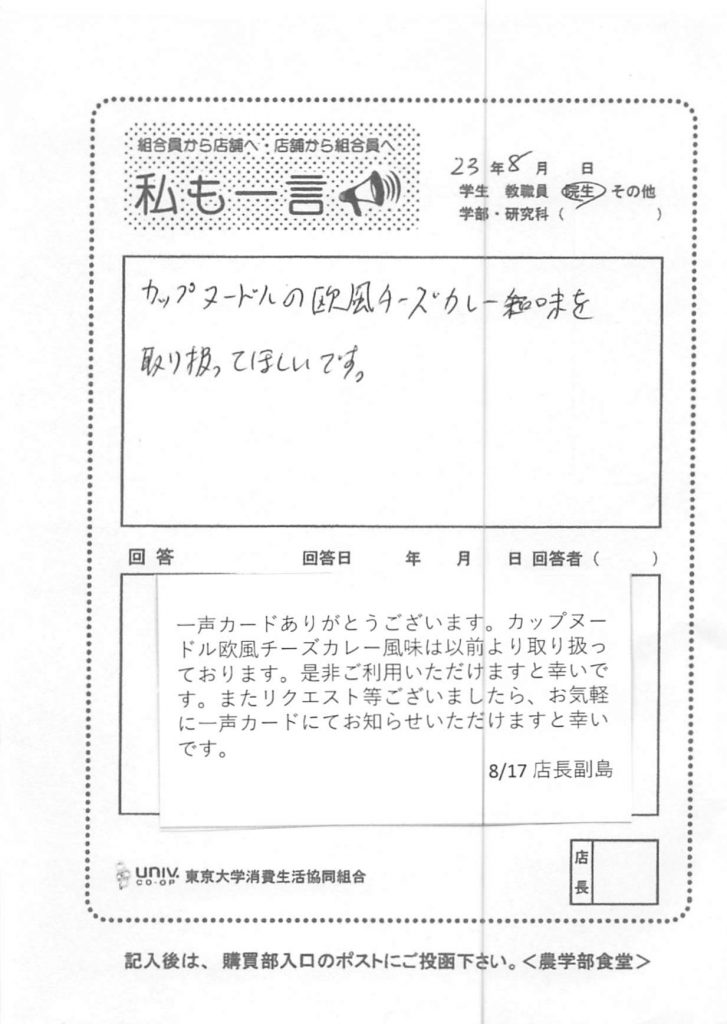 組合員から店舗へ・店舗から組合員へ
私も一言
23年8月 日
学生 教職員 院生 その他
学部・研究科( )
カップヌードルの欧風チーズカレー味を
取り扱ってほしいです。
回答 回答日 年 月 日 回答者( )
一声カードありがとうございます。カップヌー
ドル欧風チーズカレー風味は以前より取り扱っ
ております。是非ご利用いただけますと幸いで
す。またリクエスト等ございましたら、お気軽
に一声カードにてお知らせいただけますと幸い
です。
8/17 店長副島
univ.
CO-OP
東京大学消費生活協同組合
店長
記入後は、購買部入口のポストにご投函下さい。<農学部食堂>